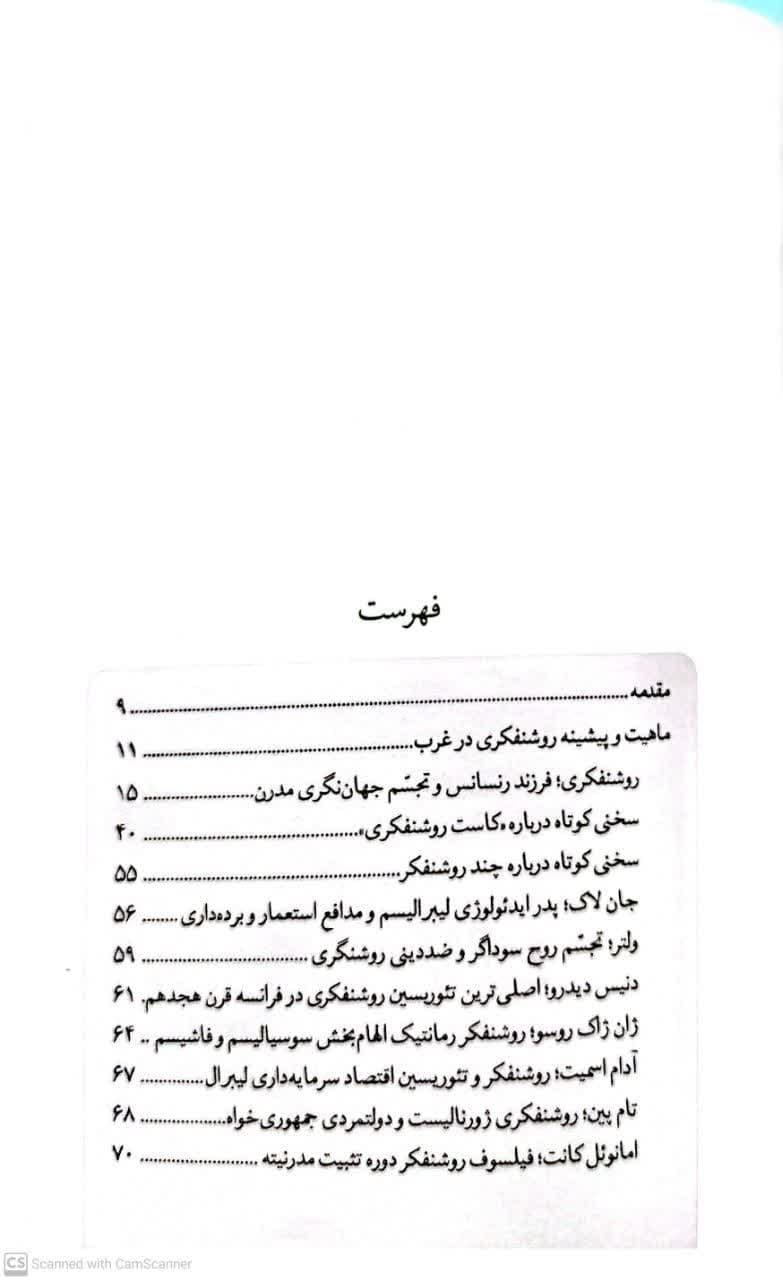 فهرست
مقدمه ........ ۹
ماهیت و پیشینه روشنفکری در غرب ........ ۱۱
روشنفکری؛ فرزند رنسانس و تجسّم جهان‌نگری مدرن ........ ۱۵
سخنی کوتاه درباره «کاست روشنفکری» ........ ۴۰
سخنی کوتاه درباره چند روشنفکر ........ ۵۵
جان لاک؛ پدر ایدئولوژی لیبرالیسم و مدافع استعمار و برده‌داری ........ ۵۶
ولتر؛ تجسّم روح سوداگر و ضددینی روشنگری ........ ۵۹
دنیس دیدرو؛ اصلی‌ترین تئوریسین روشنفکری در فرانسه قرن هجدهم. ۶۱
ژان ژاک روسو؛ روشنفکر رمانتیک الهام‌بخش سوسیالیسم و فاشیسم .. ۶۴
آدام اسمیت؛ روشنفکر و تئوریسین اقتصاد سرمایه‌داری لیبرال ........ ۶۷
تام پین؛ روشنفکری ژورنالیست و دولتمردی جمهوری‌خواه ........ ۶۸
امانوئل کانت؛ فیلسوف روشنفکر دوره تثبیت مدرنیته ........ ۷۰
CS Scanned with CamScanner